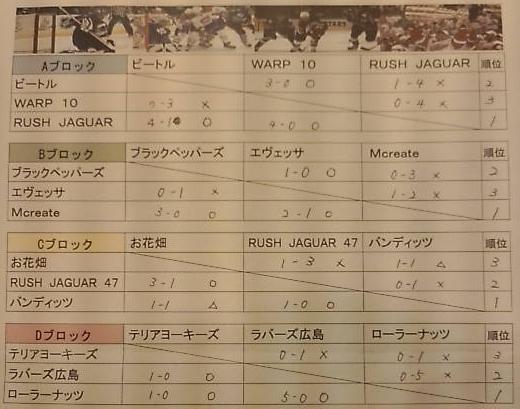 Aブロック ビートル WARP 10 RUSH JAGUAR 順位
ビートル 3-0 ○ 1-4 × 2
WARP 10 0-3 × 0-4 × 3
RUSH JAGUAR 4-1 ○ 4-0 ○ 1
Bブロック ブラックペッパーズ エヴェッサ Mcreate 順位
ブラックペッパーズ 1-0 ○ 0-3 × 2
エヴェッサ 0-1 × 1-2 × 3
Mcreate 3-0 ○ 2-1 ○ 1
Cブロック お花畑 RUSH JAGUAR 47 バンディッツ 順位
お花畑 1-3 × 1-1 △ 3
RUSH JAGUAR 47 3-1 ○ 0-1 × 2
バンディッツ 1-1 △ 1-0 ○ 1
Dブロック テリアヨーキーズ ラバーズ広島 ローラーナッツ 順位
テリアヨーキーズ 0-1 × 0-1 × 3
ラバーズ広島 1-0 ○ 0-5 × 2
ローラーナッツ 1-0 ○ 5-0 ○ 1